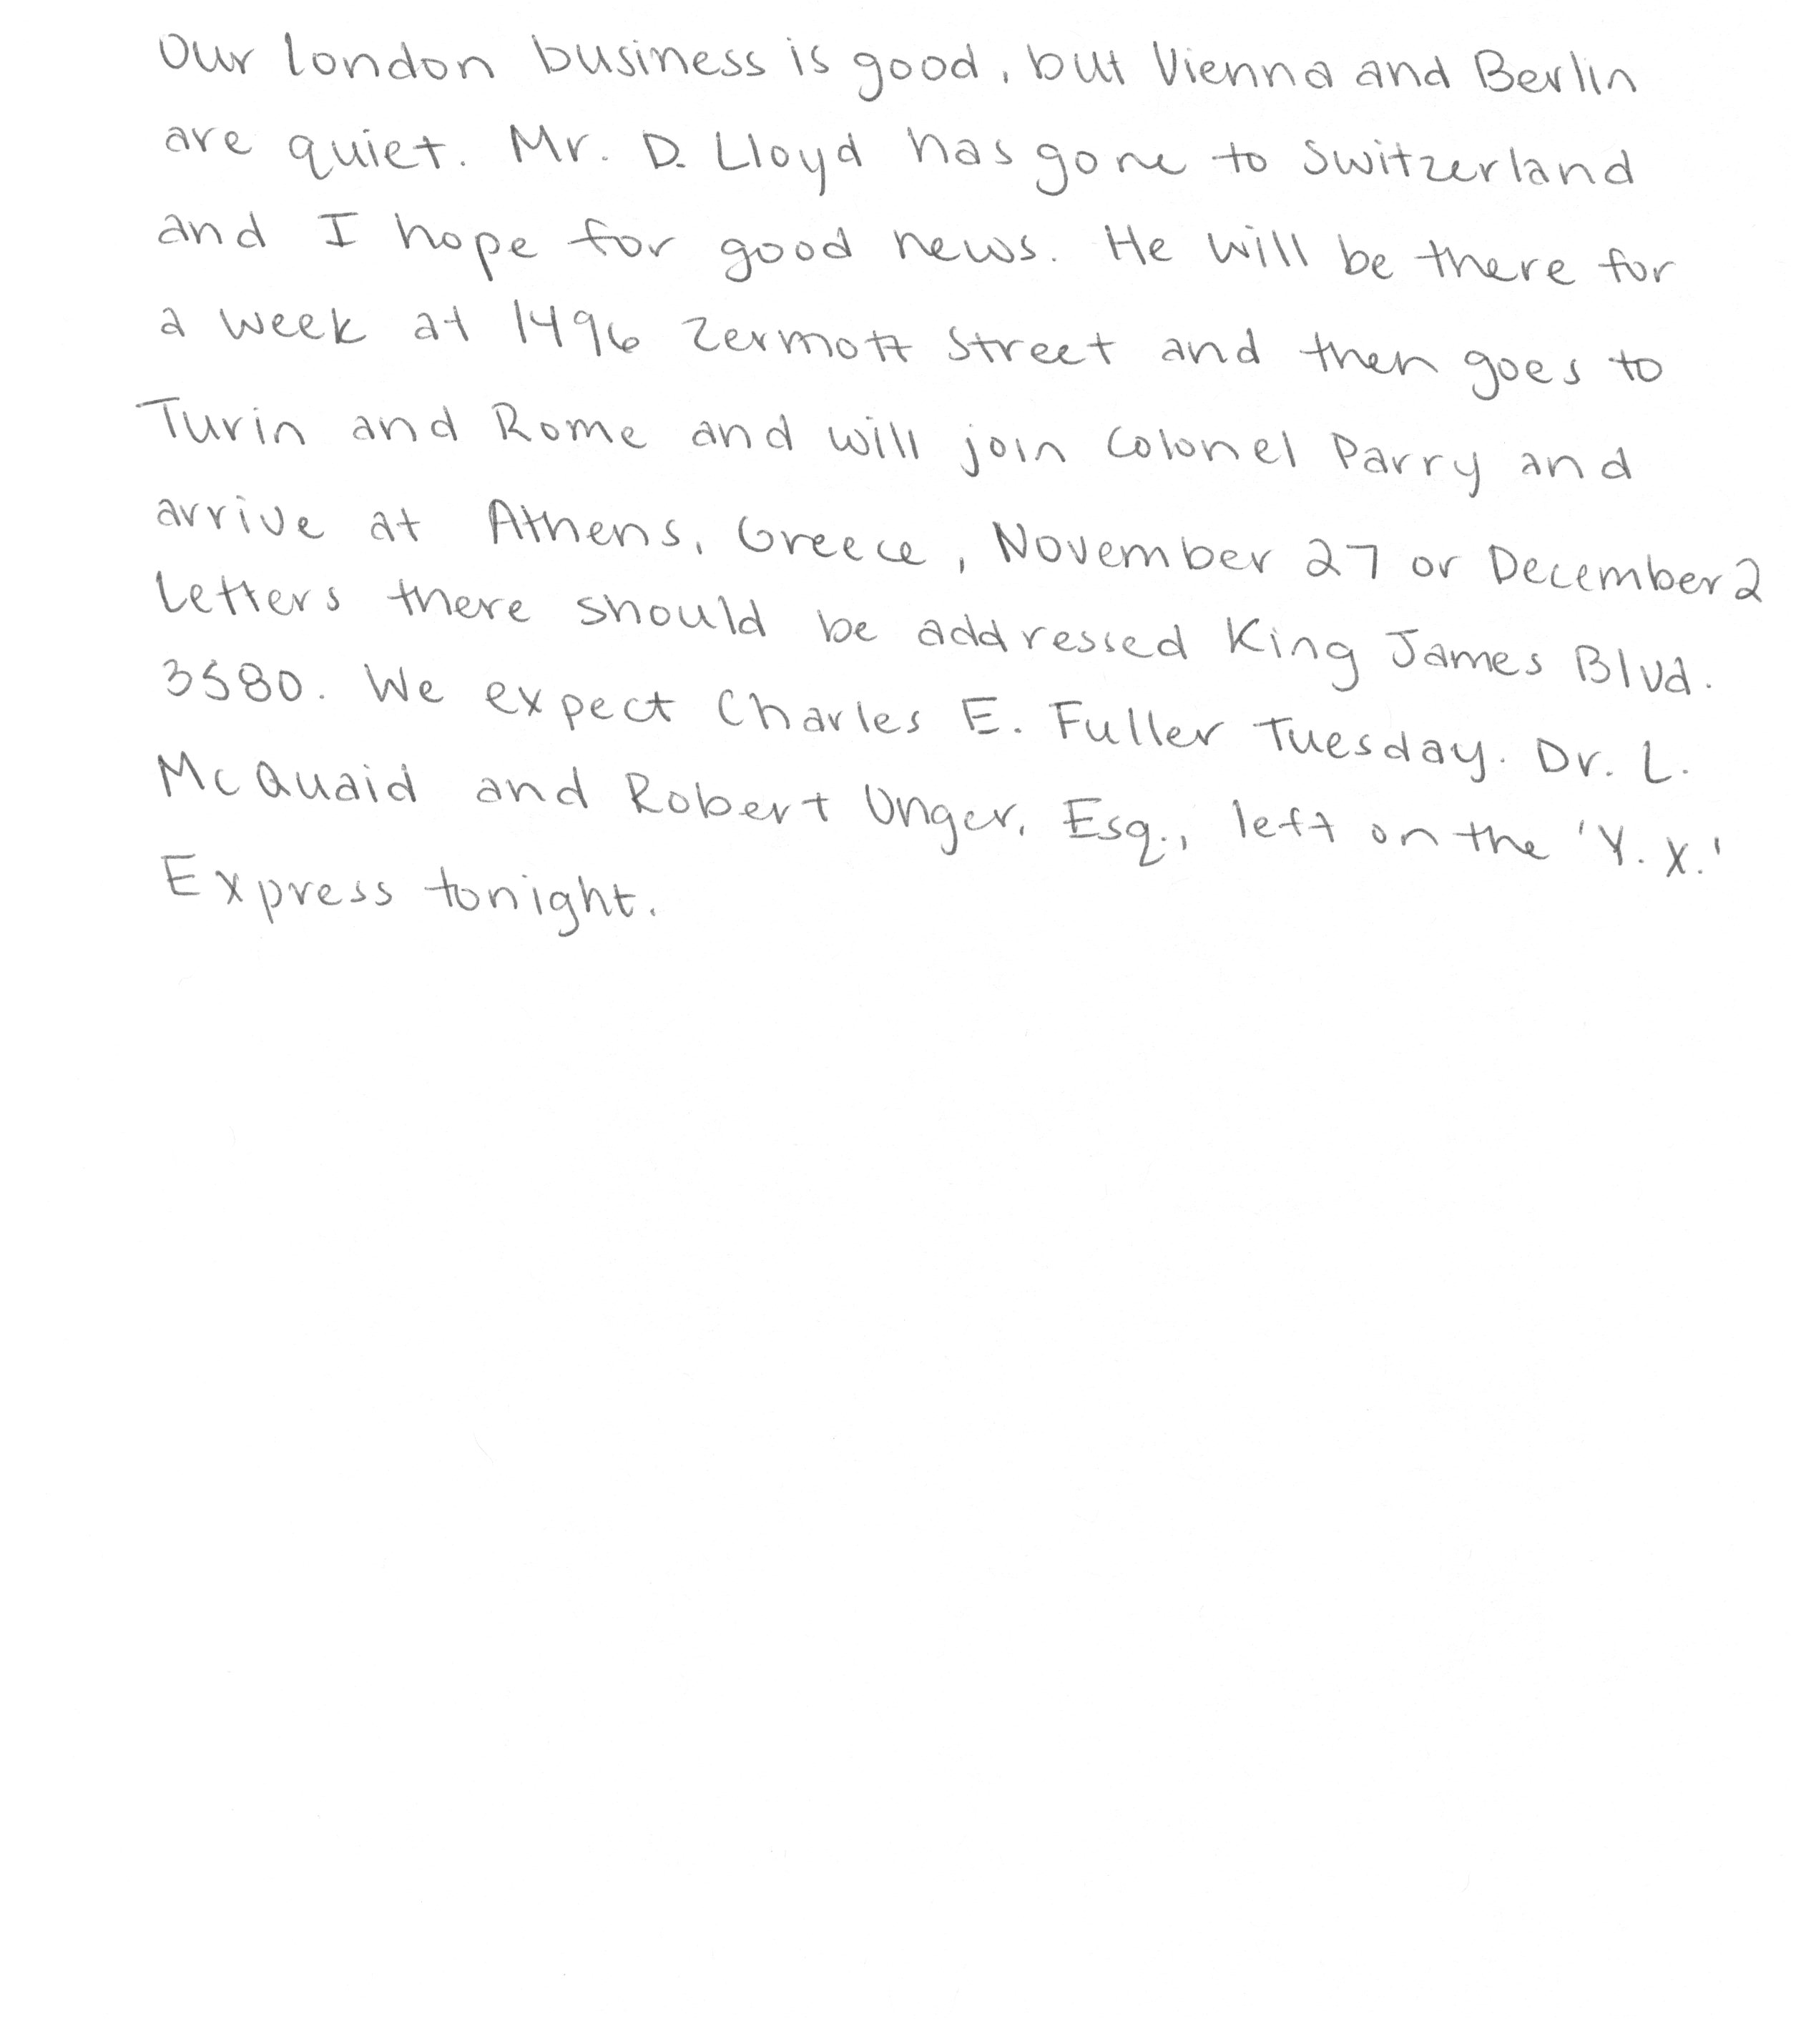 Our London business is good, but Vienna and Berlin
are quiet. Mr. D. Lloyd has gone to Switzerland
and I hope for good news. He will be there for
a week at 1496 Zermott Street and then goes to
Turin and Rome and will join Colonel Parry and
arrive at Athens, Greece, November 27 or December 2
Letters there should be addressed King James Blvd.
3580. We expect Charles E. Fuller Tuesday. Dr. L.
McQuaid and Robert Unger, Esq., left on the 'Y.X.'
Express tonight.